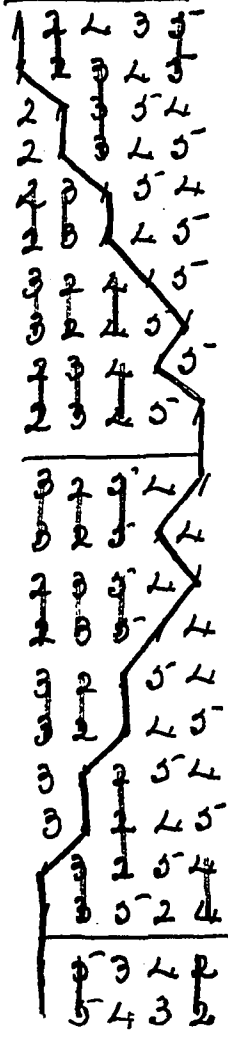 1 2 4 3 5
1 2 3 4 5
2 1 3 5 4
2 1 3 4 5
2 3 1 5 4
2 3 1 4 5
3 2 4 1 5
3 2 4 5 1
2 3 4 1 5
2 3 4 5 1
3 2 5 4 1
3 2 5 1 4
2 3 5 4 1
2 3 5 1 4
3 2 1 5 4
3 2 1 4 5
3 1 2 5 4
3 1 2 4 5
1 3 2 5 4
1 3 5 2 4
1 5 3 4 2
1 5 4 3 2